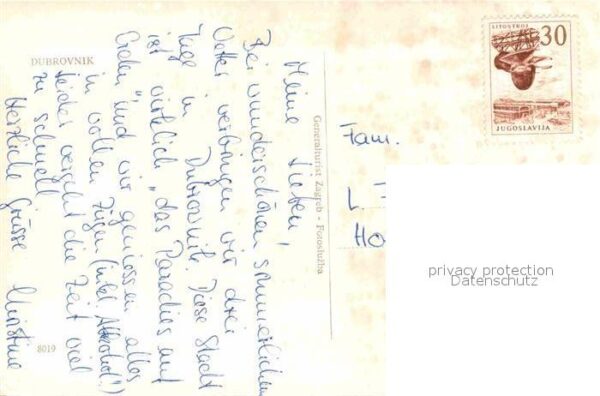 DUBROVNIK
Meine Lieben!
Bei wunderschönem, sommerlichen
Wetter verbringen wir drei
Tage in Dubrovnik. Diese Stadt
ist wirklich "das Paradies auf
Erden" und wir geniessen alles
in vollen Zügen (inkl. Alkohol!)
Leider vergeht die Zeit viel
zu schnell
Herzliche Grüsse Christine
8019
Generalturist Zagreb - Fotoslužba
LITOSTROJ
30
JUGOSLAVIJA
Fam.
L
Ho
privacy protection
Datenschutz